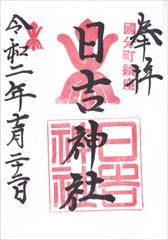 奉拝
國分町鎮座
日吉神社
日吉社
令和二年十一月二十三日